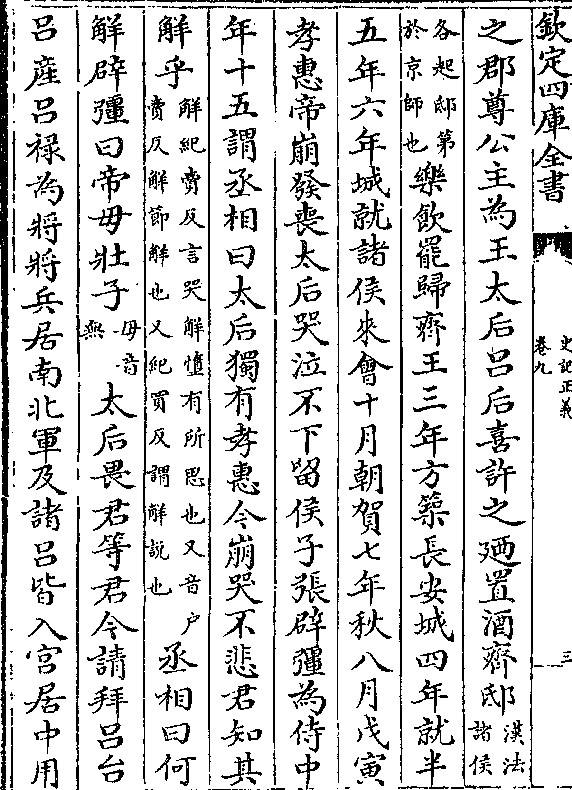 欽定四庫全書
史記正義
卷九
三
之郡尊公主為王太后呂后喜許之廼置酒齊邸漢法諸侯
各起邸第於京師也樂飲罷歸齊王三年方築長安城四年就半
五年六年城就諸侯來會十月朝賀七年秋八月戊寅
孝惠帝崩發喪太后哭泣不下留侯子張辟彊為侍中
年十五謂丞相曰太后獨有孝惠今崩哭不悲君知其
解乎解紀賣反言哭解墯有所思也又音户賣反解節解也又紀買反謂解説也丞相曰何
解辟彊曰帝毋壯子毋音無太后畏君等君今請拜呂台
呂產呂禄為將將兵居南北軍及諸呂皆入宮居中用